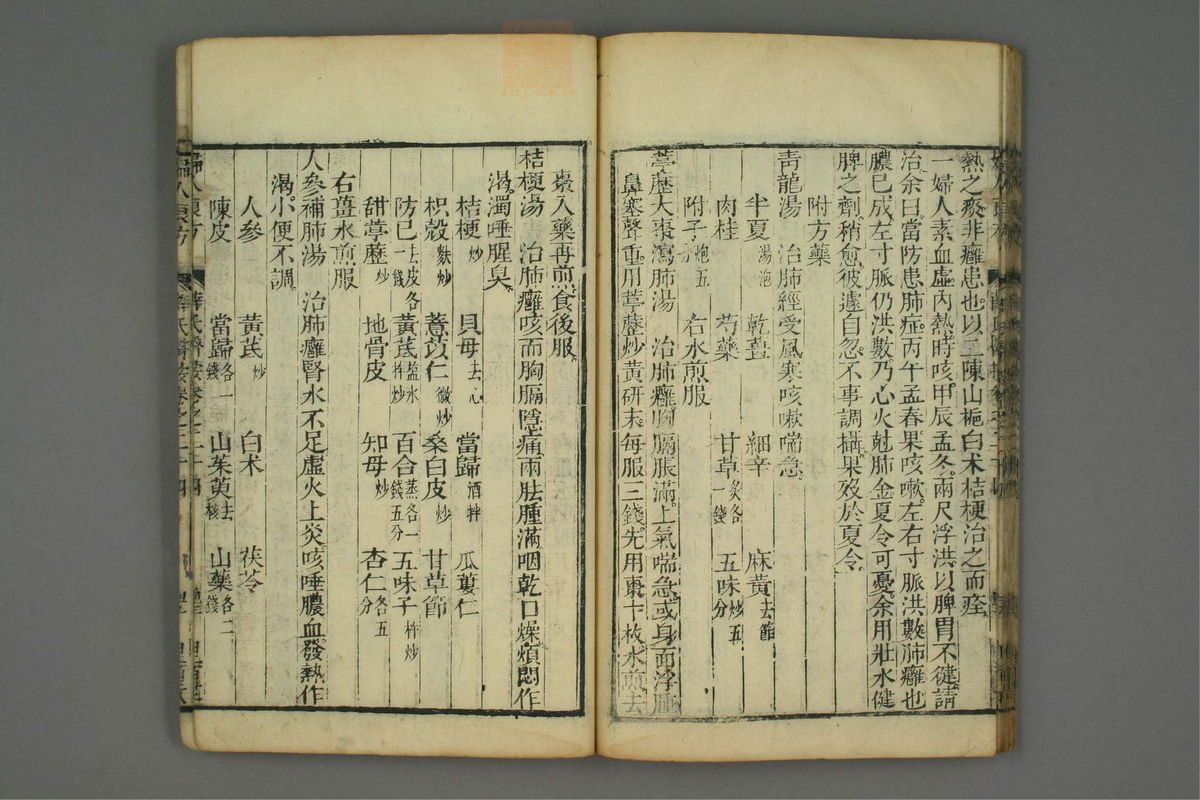 熱之痰非癰患也以二陳山梔白术桔梗治之而痊
一婦人素血虛內熱時咳甲辰孟冬兩尺浮洪以脾胃不健請
治余曰當防患肺症丙午孟春果咳嗽左右寸脈洪數肺癰也
膿已成左寸脈仍洪數乃心火尅肺金夏令可憂余用壯水健
脾之劑稍愈彼遽自忽不事調攝果歿於夏令
附方藥
青龍湯 治肺經受風寒咳嗽喘急
半夏湯泡 乾薑 細辛 麻黃去節
肉桂 芍藥 甘草炙各一錢 五味炒五分
附子炮五分 右水煎服
葶藶大棗瀉肺湯 治肺癰胸膈脹滿上氣喘急或身面浮腫
鼻塞聲重用葶藶炒黃研末每服三錢先用棗十枚水煎去
棗入藥再煎食後服
桔梗湯 治肺癰咳而胸膈隱痛兩胠腫滿咽乾口燥煩悶作
渴濁唾腥臭
桔梗炒 貝母去心 當歸酒拌 瓜蔞仁
枳殼麩炒 薏苡仁微炒 桑白皮炒 甘草節
防已去皮各一錢 黃芪鹽水拌炒 百合蒸各一錢五分 五味子杵炒
甜葶藶炒 地骨皮 知母炒 杏仁各五分
右薑水煎服
人參補肺湯 治肺癰腎水不足虛火上炎咳唾膿血發熱作
渴小便不調
人參 黃芪炒 白术 茯苓
陳皮 當歸各一錢 山茱萸去核 山藥各二錢
婦人良方
薛氏醫按卷之二十四